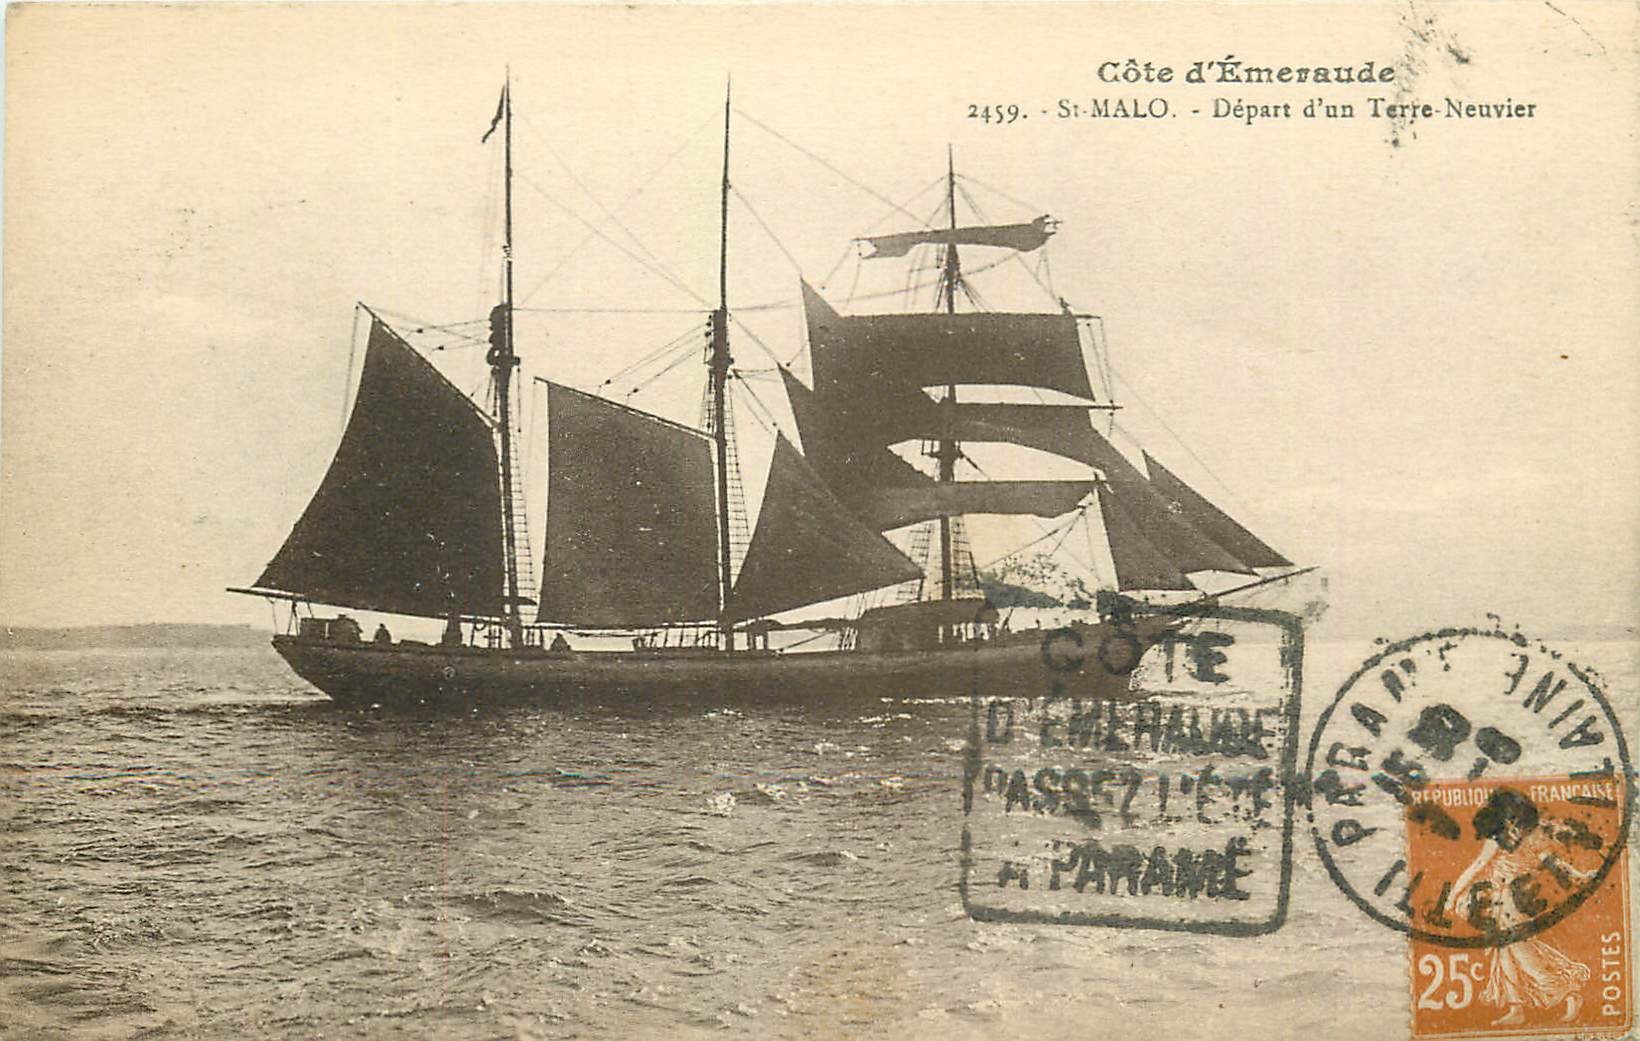 Côte d'Émeraude
2459. - St-MALO. - Départ d'un Terre-Neuvier
CÔTE
D'ÉMERAUDE
PASSEZ L'ÉTÉ
A PARAMÉ
PARAMÉ
ILLE ET VILAINE
REPUBLIQUE FRANÇAISE
25c
POSTES